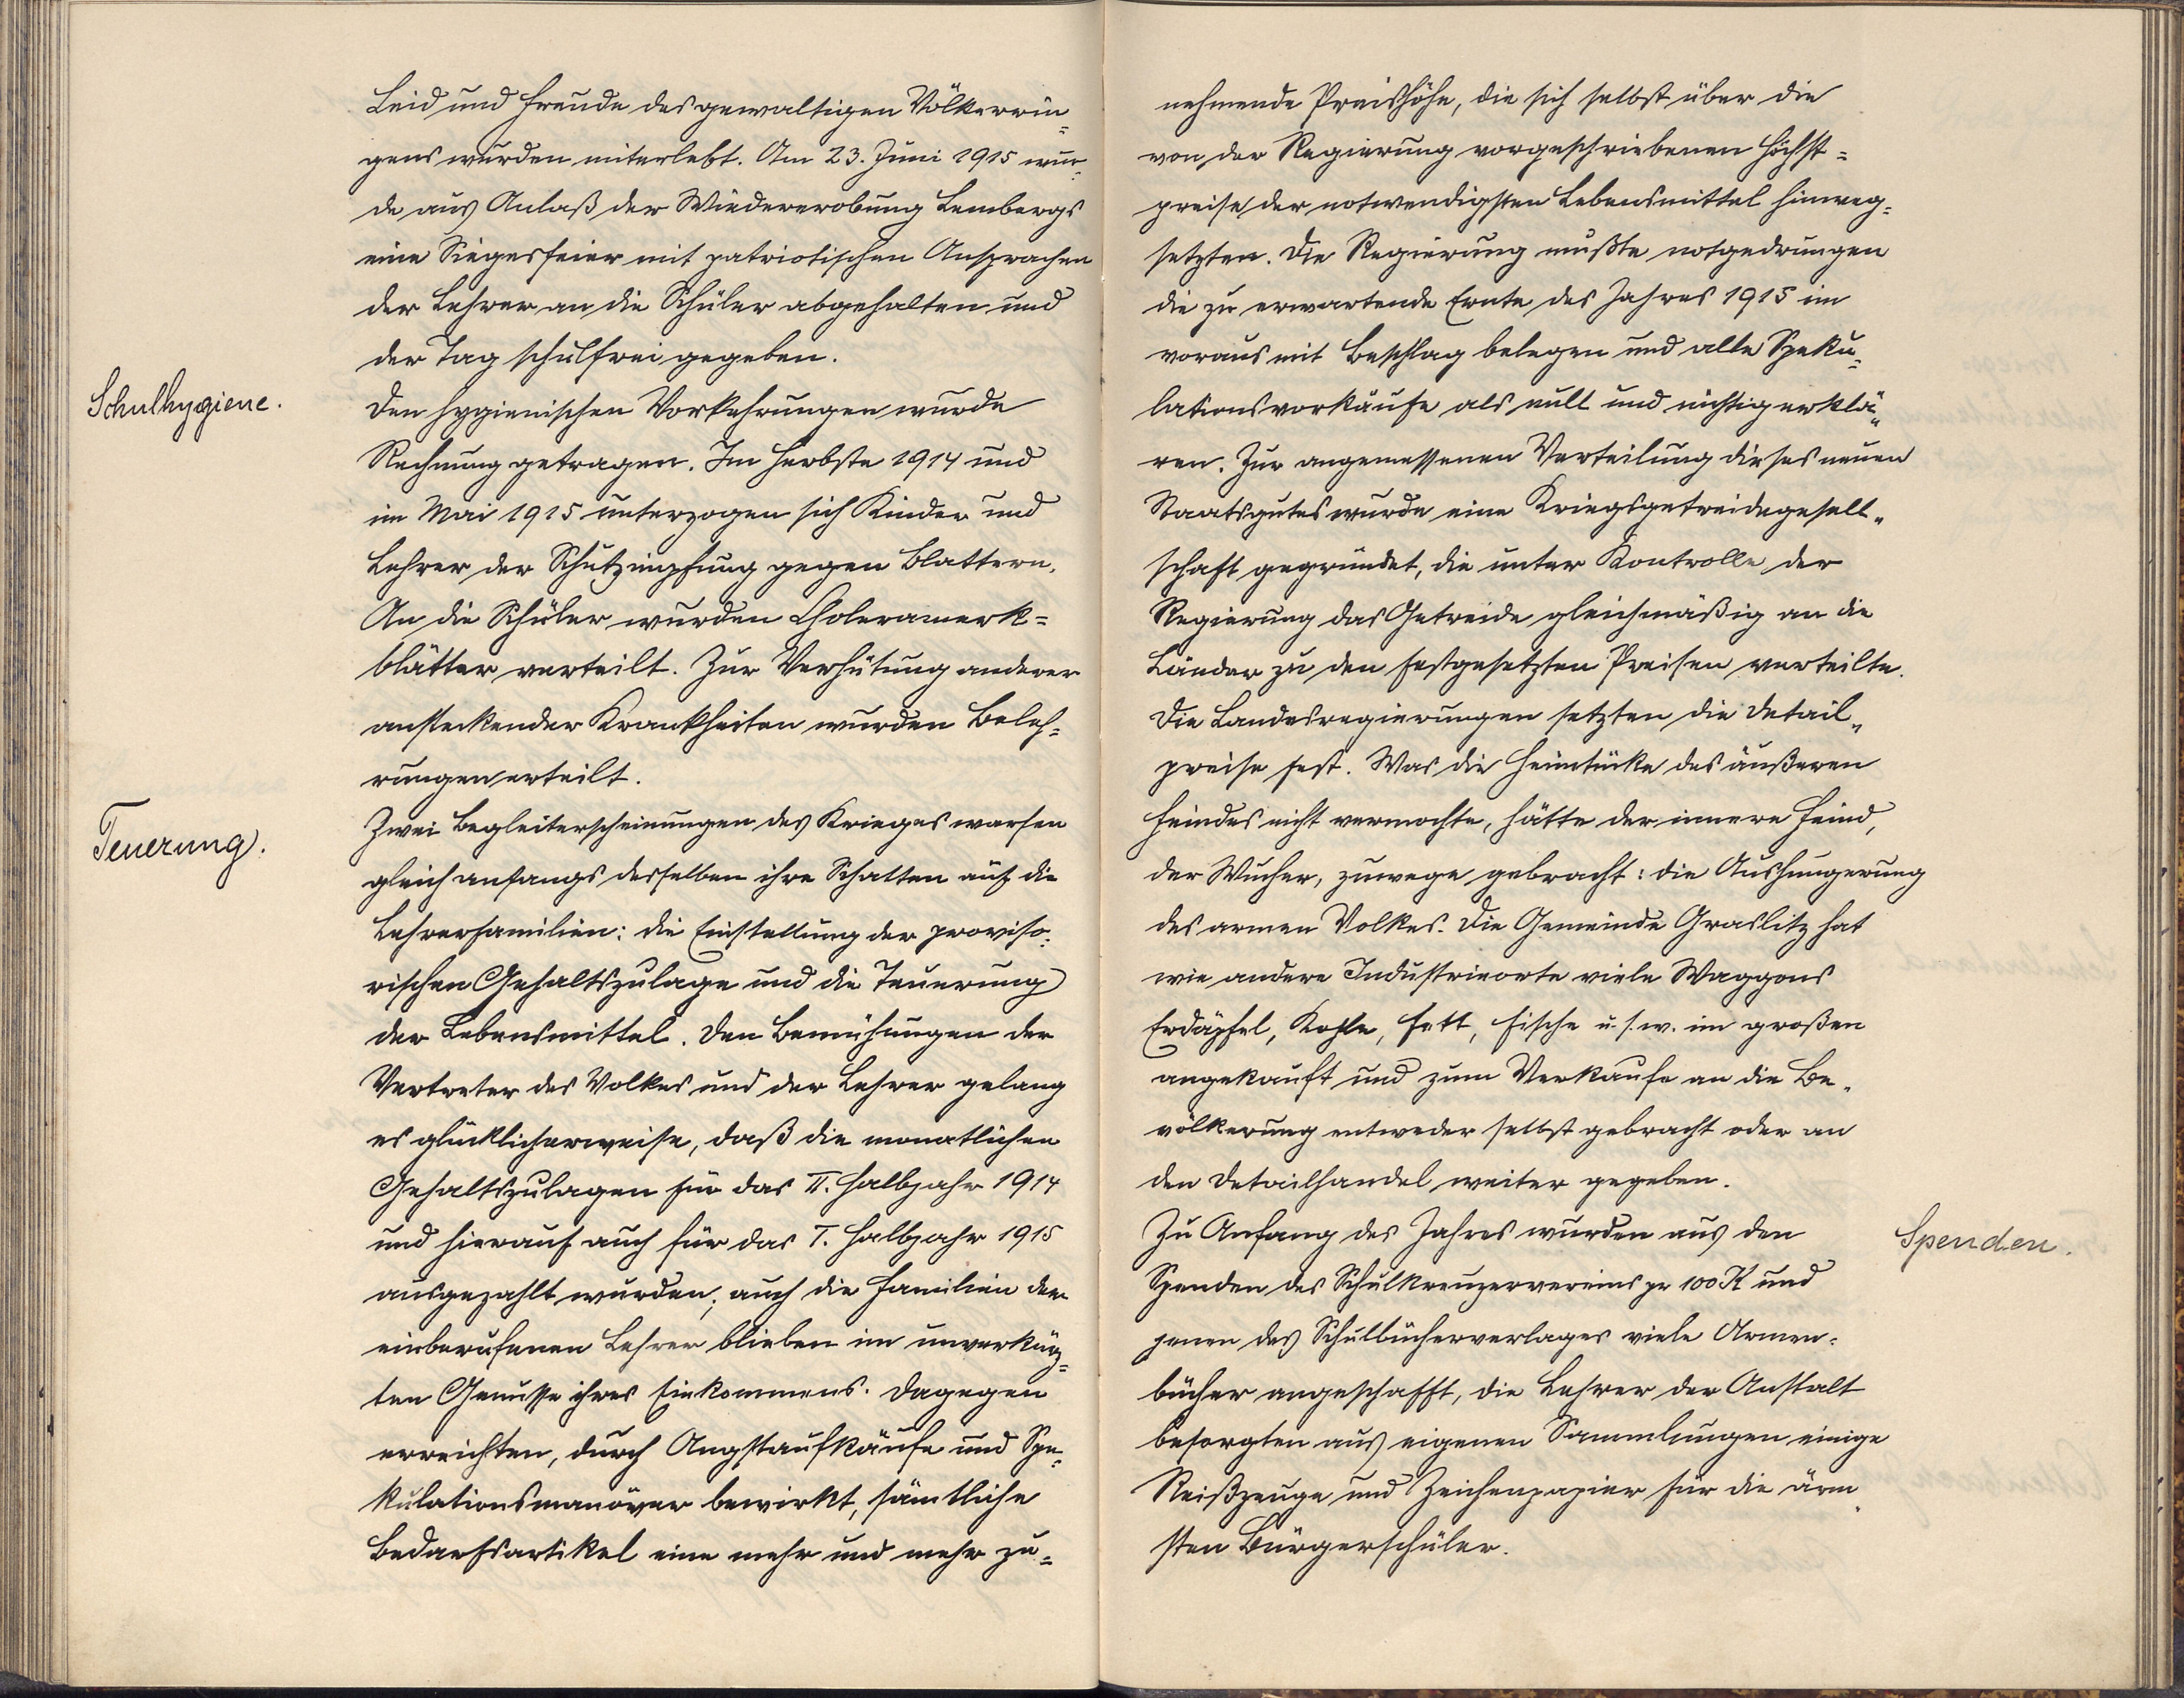 Leid und Freude des gewaltigen Völkerrin=
gens wurden miterlebt. Am 23. Juni 1915 wur=
de aus Anlaß der Wiedererobung Lembergs
eine Siegesfeier mit patriotischen Ansprachen
der Lehrer an die Schüler abgehalten und
der Tag schulfrei gegeben.
Schulhygiene.
Den hygienischen Vorkehrungen wurde
Rechnung getragen. Im Herbste 1914 und
im Mai 1915 unterzogen sich Kinder und
Lehrer der Schutzimpfung gegen Blattern.
An die Schüler wurden Choleramerk=
blätter verteilt. Zur Verhütung anderer
ansteckender Krankheiten wurden Beleh=
rungen erteilt.
Teuerung.
Zwei Begleiterscheinungen des Krieges warfen
gleich anfangs desselben ihre Schatten auf die
Lehrerfamilien: die Einstellung der proviso=
rischen Gehaltszulage und die Teuerung
der Lebensmittel. Den Bemühungen der
Vertreter des Volkes und der Lehrer gelang
es glücklicherweise, daß die monatlichen
Gehaltszulagen für das II. Halbjahr 1914
und hierauf auch für das I. Halbjahr 1915
ausgezahlt wurden; auch die Familien der
einberufenen Lehrer blieben im unverkürz=
ten Genusse ihres Einkommens. Dagegen
erreichten, durch Angstaufkäufe und Spe=
kulationsmanöver bewirkt, sämtliche
Bedarfsartikel eine mehr und mehr zu=
nehmende Preishöhe, die sich selbst über die
von der Regierung vorgeschriebenen Höchst=
preise der notwendigsten Lebensmittel hinweg=
setzten. Die Regierung mußte notgedrungen
die zu erwartende Ernte des Jahres 1915 im
voraus mit Beschlag belegen und alle Speku=
lationsvorkäufe als null und nichtig erklä=
ren. Zur angemessenen Verteilung dieses neuen
Staatsgutes wurde eine Kriegsgetreidegesell=
schaft gegründet, die unter Kontrolle der
Regierung das Getreide gleichmäßig an die
Länder zu den festgesetzten Preisen verteilte.
Die Landesregierungen setzten die Detail=
preise fest. Was die Heimtücke des äußeren
Feindes nicht vermochte, hätte der innere Feind,
der Wucher, zuwege gebracht: die Aushungerung
des armen Volkes. Die Gemeinde Graslitz hat
wie andere Industrieorte viele Waggons
Erdäpfel, Kohle, Fett, Fische u.s.w. im großen
angekauft und zum Verkaufe an die Be=
völkerung entweder selbst gebracht oder an
den Detailhandel weiter gegeben.
Spenden.
Zu Anfang des Jahres wurden aus den
Spenden des Schulkreuzervereins pr 100 K und
jenen des Schulbücherverlages viele Armen=
bücher angeschafft, die Lehrer der Anstalt
besorgten aus eigenen Sammlungen einige
Reißzeuge und Zeichenpapier für die ärm=
sten Bürgerschüler.